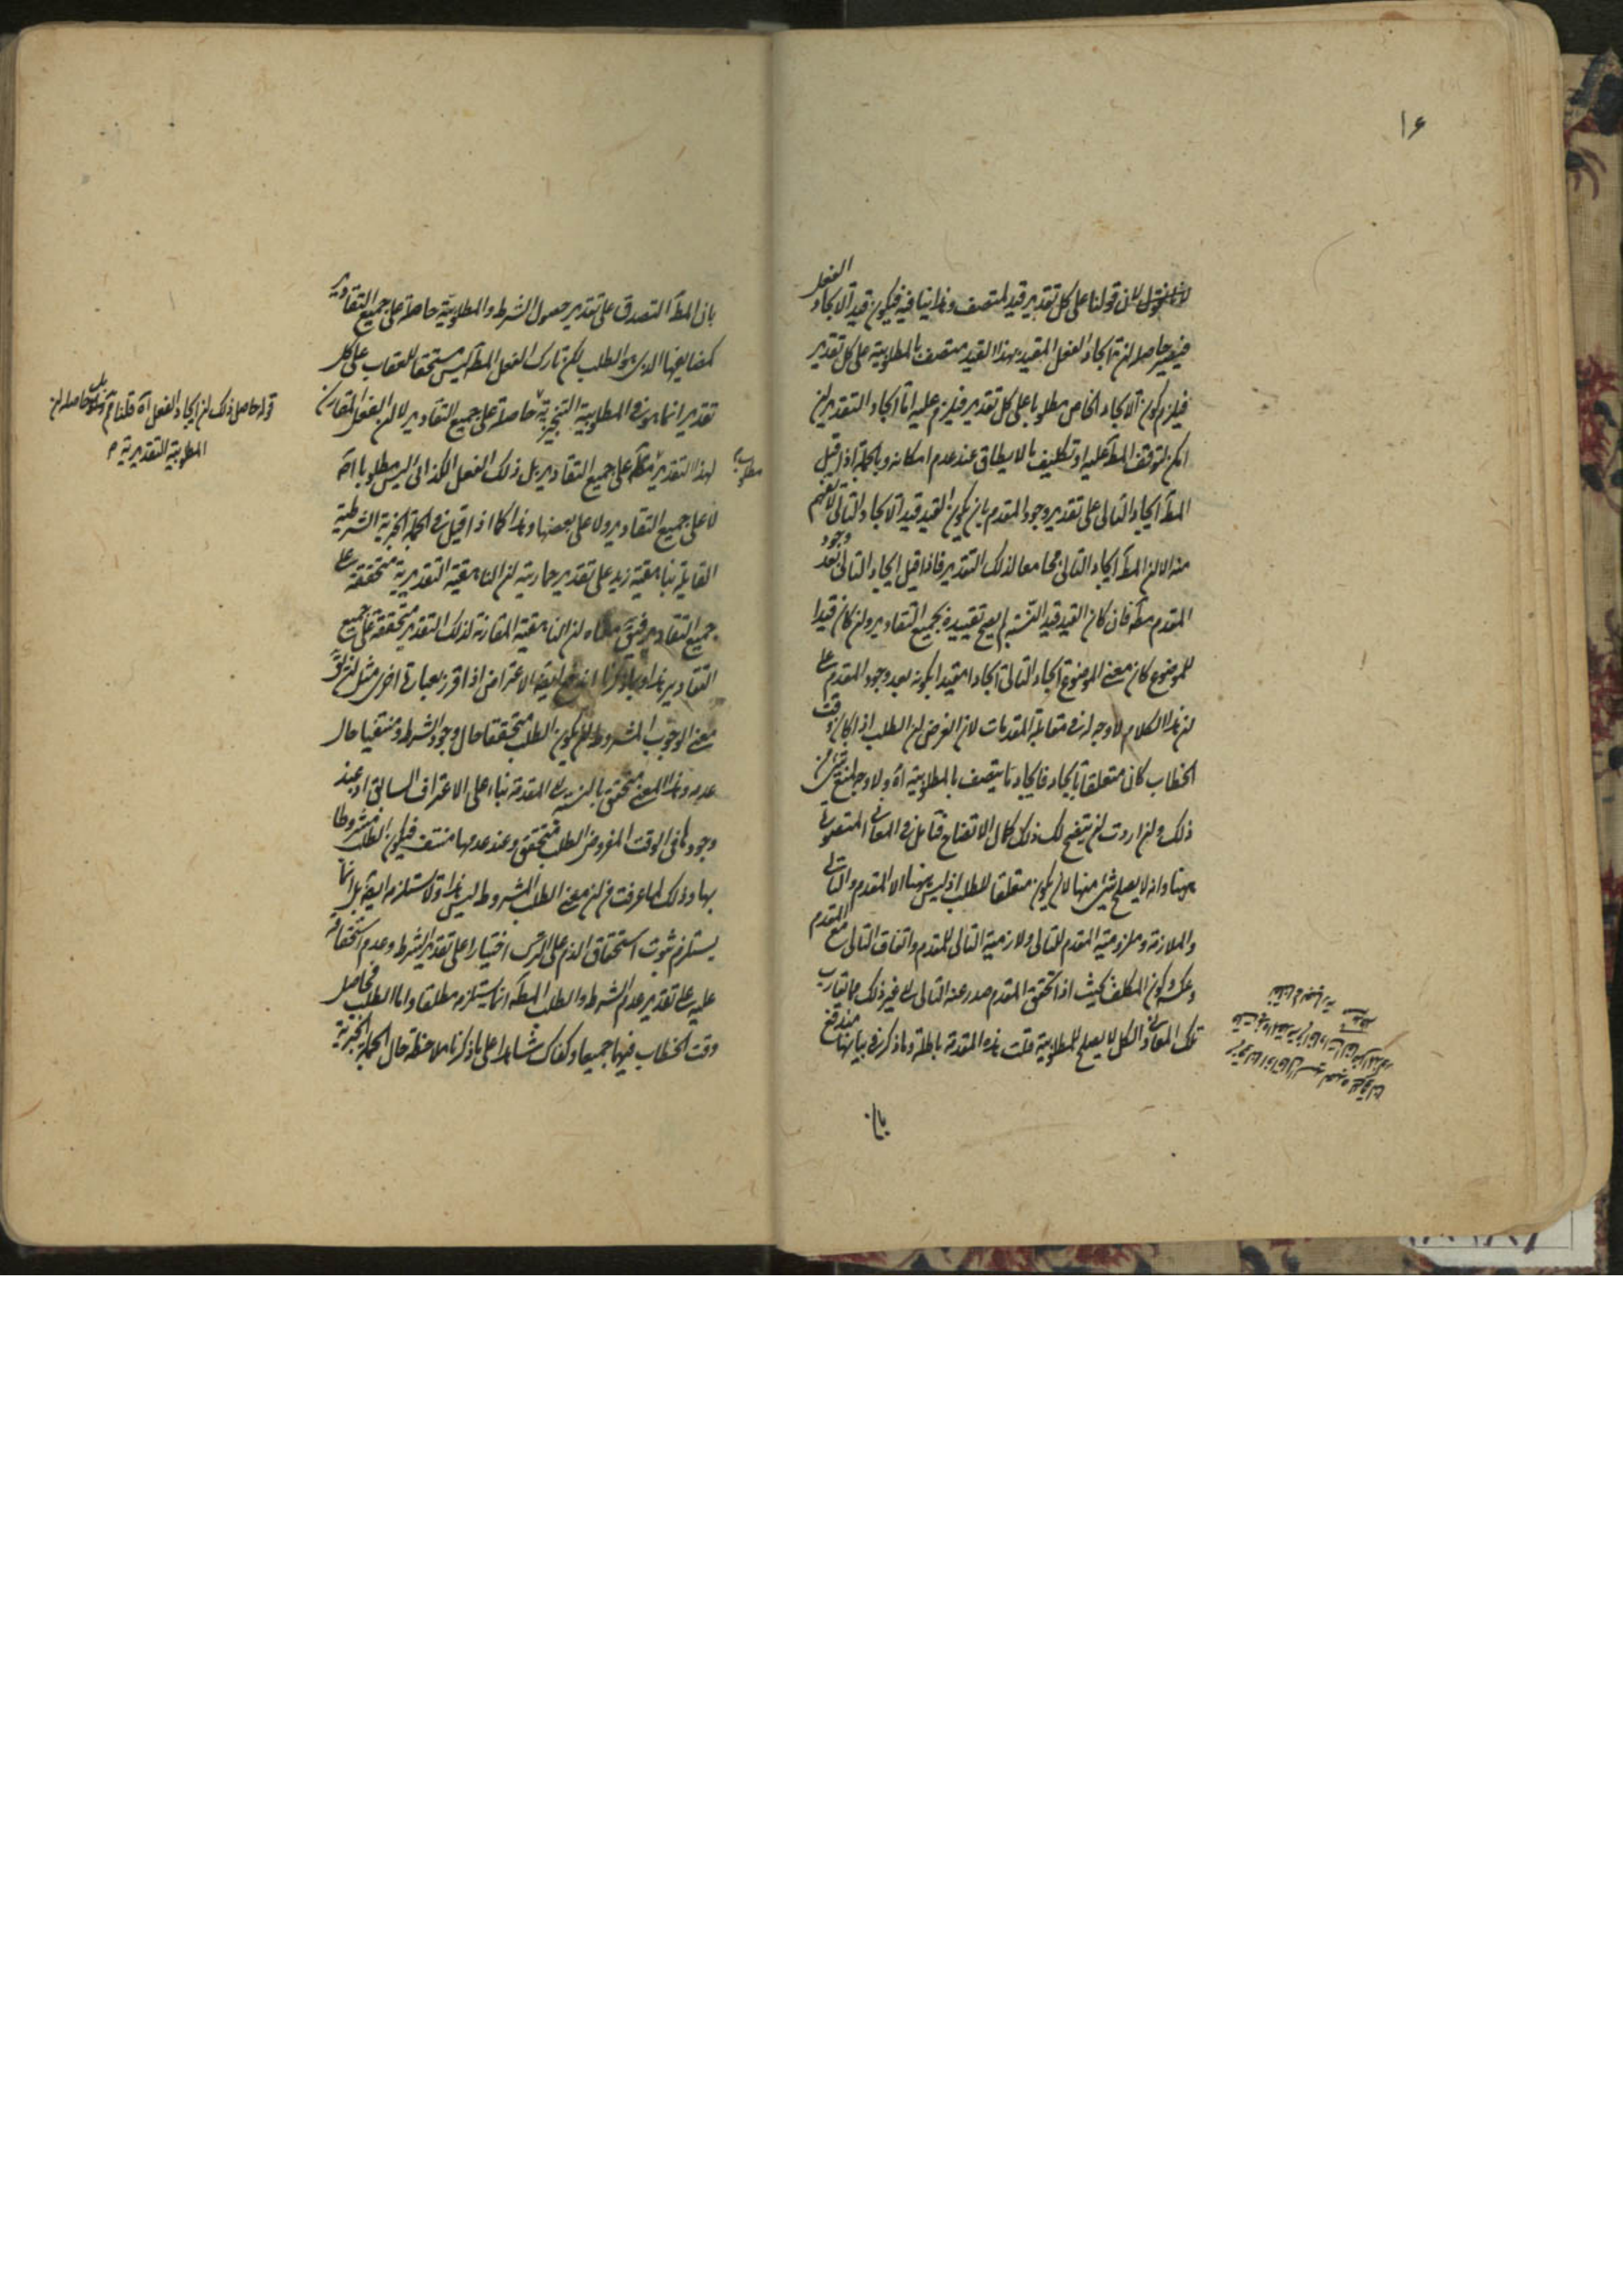 ۱۶
لانا نقول لان قولنا على كل تقدير قيد لمتصف وهذا ينافيه فيكون قيد الايجاد الفعل
فيصير حاصله ان ايجاد الفعل المقيد بهذا القيد متصف بالمطلوبية على كل تقدير
فيلزم كون الايجاد الخاص مطلوبا على كل تقدير فيلزم عليه اما ايجاد التقدير ان
امكن لتوقف المط عليه او تكليف بالايطاق عند عدم امكانه وبالجملة اذا قيل
المط ايجاد التالى على تقدير وجود المقدم بان يكون القيد قيد الايجاد التالى لا يفهم
منه الا ان المط ايجاد التالى مجامعا لذلك التقدير فاذا قيل ايجاد التالى بعد وجود
المقدم مط فان كان القيد قيد النسبة لم يصح تقييده بجميع التقادير ولن كان قيدا
للموضوع كان معنى الموضوع ايجاد التالى ايجادا مقيدا بكونه بعد وجود المقدم على
ان هذا الكلام لا وجه له فى مقابلة المقدمات لان الغرض ان الطلب اذا كان وقت
الخطاب كان متعلقا بايجاد فايجاد ما يتصف بالمطلوبية اه ولا وجه لمنع شئ من
ذلك ولن اردت ان يتضح لك ذلك كمال الاتضاح فتامل فى المعانى المتصورة
ههنا وانه لا يصلح شئ منها لان يكون متعلقا للطلب اذ ليس ههنا الا المقدم والتالى
والملازمة وملزومية المقدم للتالى ولازمية التالى للمقدم واتفاق التالى مع المقدم
وعكسه وكون المكلف بحيث اذا تحقق المقدم صدر عنه التالى الى غير ذلك مما يقارب
تلك المعانى والكل لا يصلح للمطلوبية قلت هذه المقدمة باطلة وما ذكر فى بيانها مندفع
بان
بان المط التصدق على تقدير حصول الشرط والمطلوبية حاصلة على جميع التقادير
كمضايفها الذى هو الطلب لكن تارك الفعل المط ليس مستحقا للعقاب على كل
تقدير انما هو فى المطلوبية التنجيزية حاصلة على جميع التقادير لا لان الفعل المقارن
لهذا التقدير على جميع التقادير بل ذلك الفعل الكذائى ليس مطلوبا اصلا
مطلوب
لا على جميع التقادير ولا على بعضها وهذا كما اذا قيل فى الجملة الخبرية الشرطية
القايلة بناهقية زيد على تقدير حماريته ان الناهقية التقديرية متحققة على
جميع التقادير فيق معناه ان الناهقية المقارنة لذلك التقدير متحققة على جميع
التقادير هذا وبما ذكرنا اندفع ايضا الاعتراض اذا قرر بعبارة اخرى مثل ان يق
معنى الوجوب المشروط ان يكون الطلب متحققا حال وجود الشرط ومنتفيا حال
عدمه وهذا المعنى متحقق بالنسبة الى المقدمة بناء على الاعتراف السابق اذ عند
وجودها فى الوقت المفروض الطلب متحقق وعند عدمها منتف فيكون الطلب مشروطا
بها وذلك لما عرفت من ان معنى الطلب المشروط ليس هذا ولا يستلزمه ايضا بل انما
يستلزم ثبوت استحقاق الذم على الترك اختيارا على تقدير الشرط وعدم استحقاقه
عليه على تقدير عدم الشرط والطلب المط انما يستلزمه مطلقا واما الطلب فحاصل
وقت الخطاب فيهما جميعا وكفاك شاهدا على ما ذكرنا ملاحظة حال الجملة الخبرية
قوله حاصل ذلك ان ايجاد الفعل اه قلنا م بل حاصله ان
المطلوبية التقديرية م